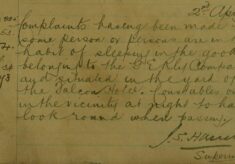 2nd Apr
Complaints having been made
some person or persons are in
habit of sleeping in the good
belonging to the G E Rly Compa
and situated in the yard of
the Falcon Hotel. Constables
in the vicinity at night to ha
look round when passing
Superin